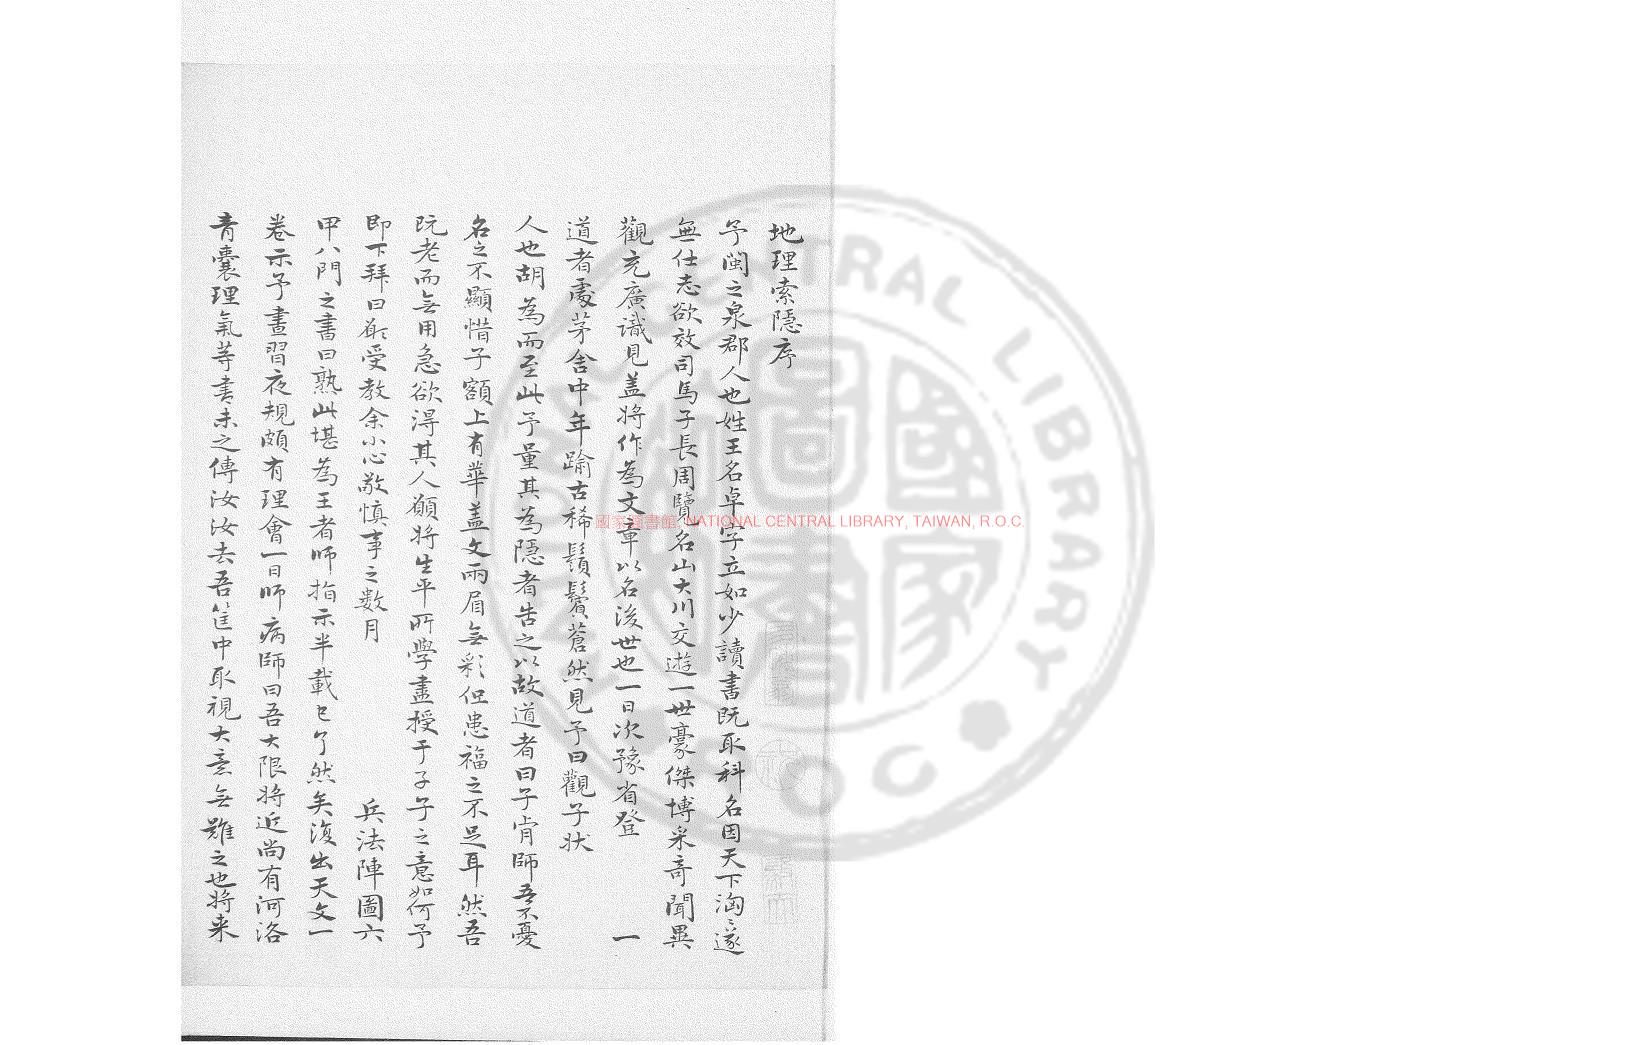 地理索隱序
予閩之泉郡人也姓王名卓字立如少讀書既取科名因天下洶〻遂
無仕志欲效司馬子長周覽名山大川交遊一世豪傑博采奇聞異
觀充廣識見盖將作為文章以名後世也一日次豫省登 一
道者處茅舍中年踰古稀鬚鬢蒼然見予曰觀子状
人也胡為而至此予量其為隱者告之以故道者曰子肯師吾不憂
名之不顯惜子額上有華盖文兩眉無彩但患福之不足耳然吾
既老而無用急欲得其人願將生平所學盡授于子子之意如何予
即下拜曰願受教余小心敬慎事之数月 兵法陣圖六
甲八門之書曰熟此堪為王者師指示半載已了然矣復出天文一
卷示予晝習夜規頗有理會一日師病師曰吾大限將近尚有河洛
青囊理氣等書未之傳汝汝去吾笸中取視大意無難之也將来
國家圖書館, NATIONAL CENTRAL LIBRARY, TAIWAN, R.O.C.